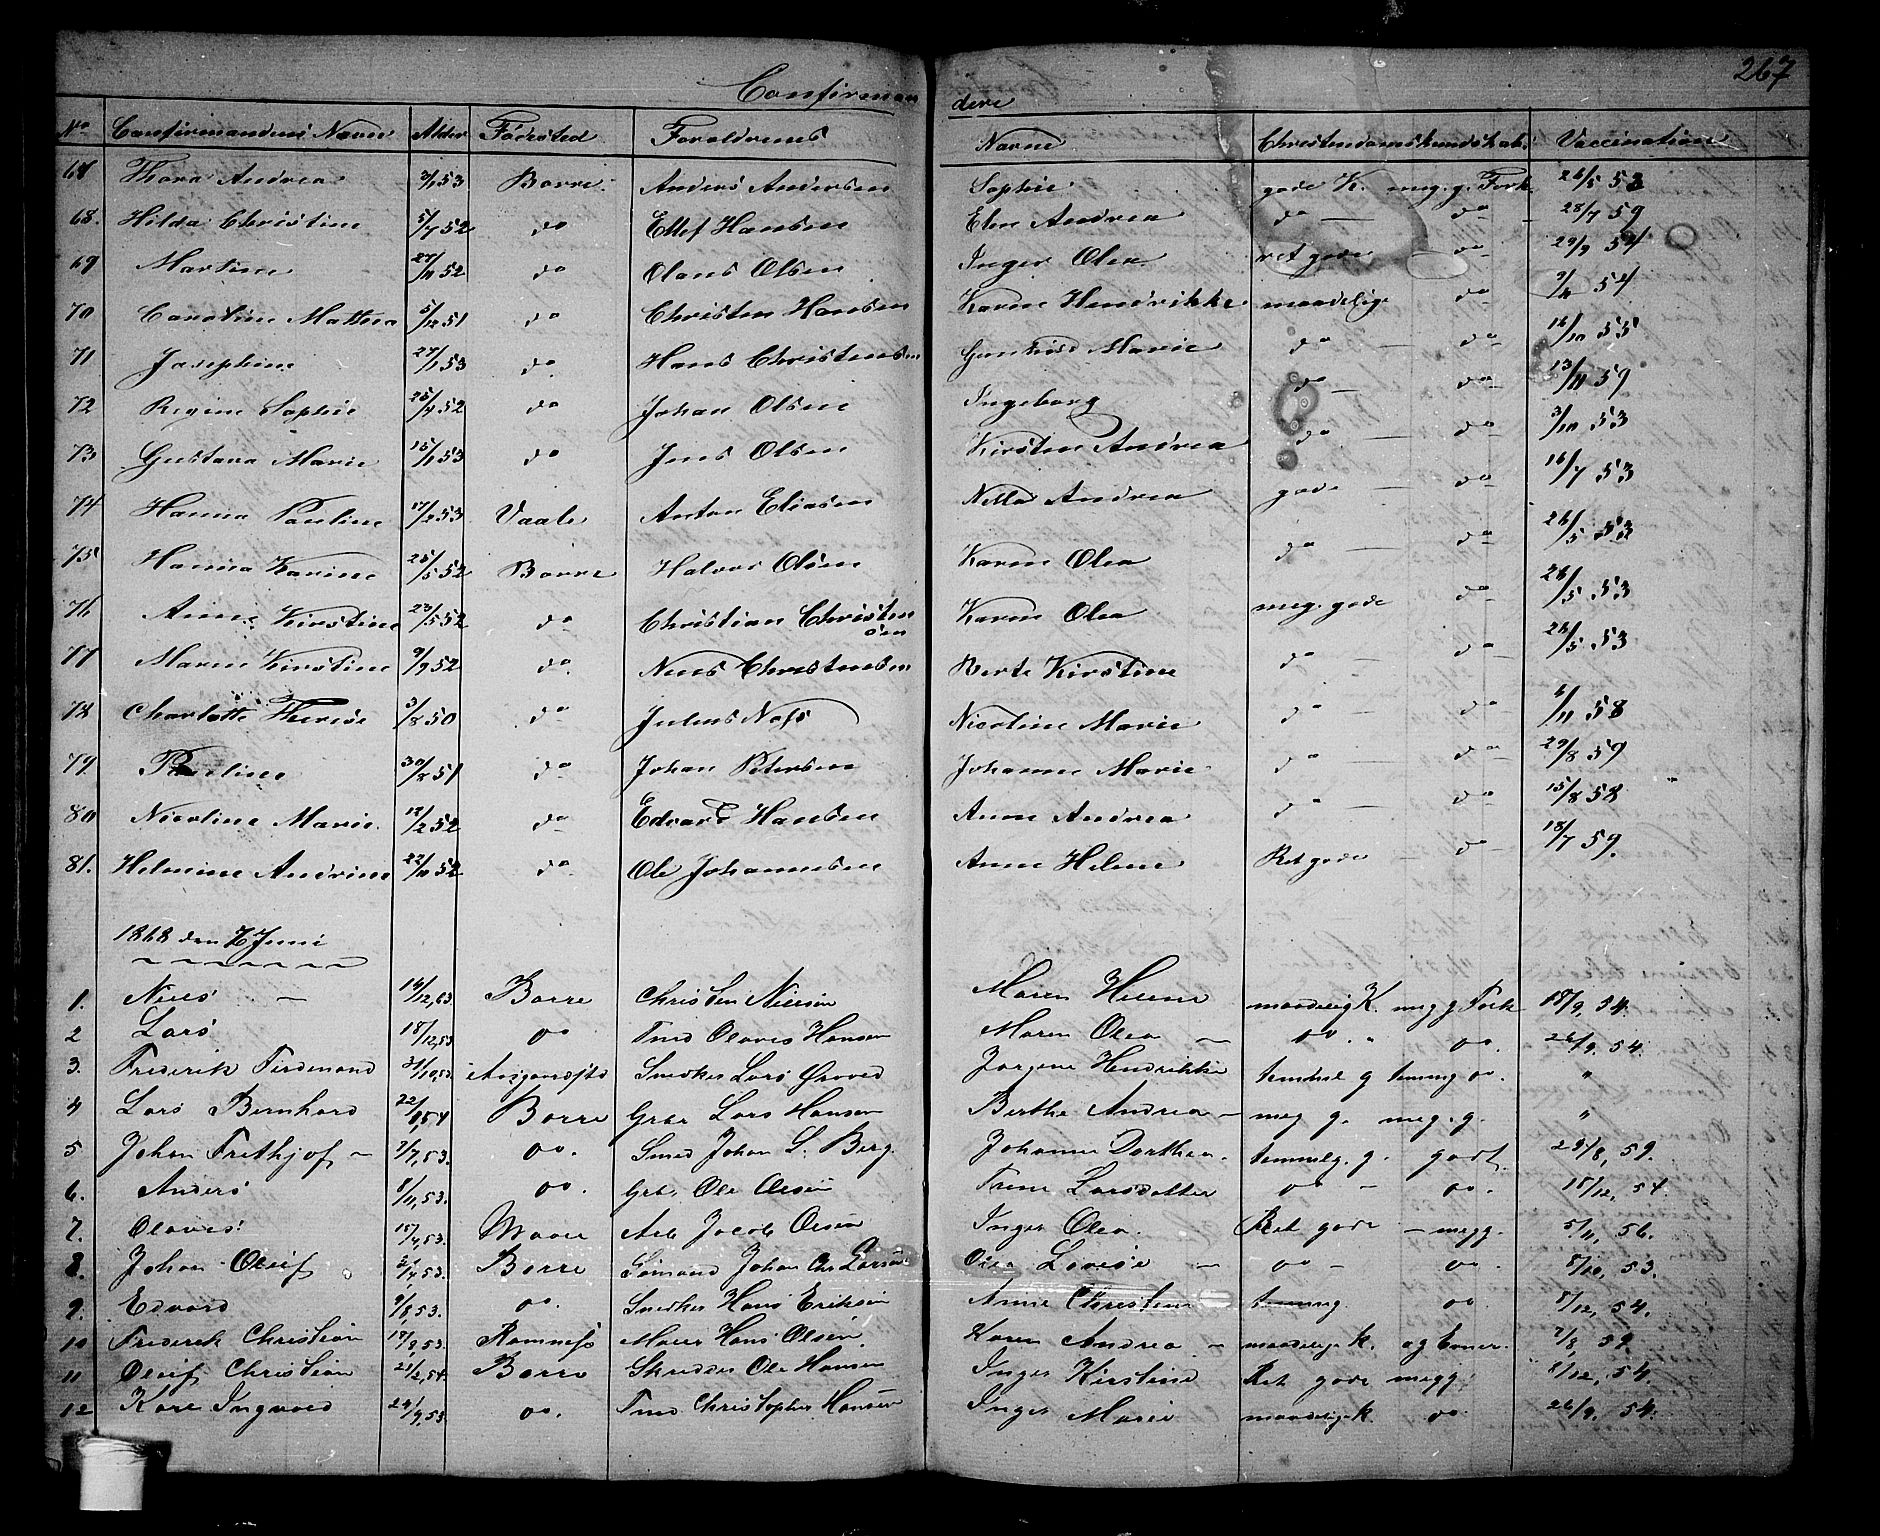 267
Confirman dere
No Confirmandens Navne Alder Fødested Forældrenes Navne Christendomskundskab Vaccination
67 Thora Andrea 3/1 53 Borre Anders Andersen Sophie gode K. meg. g. Forh 26/5 53
68. Hilda Christine 5/7 52 do Ellef Hansen Elen Andrea do — do 28/7 59
69 Martine 27/11 52 do Olaus Olsen Inger Olea ret gode do 29/9 54
70 Caroline Mathea 5/12 51 do Christen Hansen Karen Hendrikke maadelige do 54
71 Josephine 27/1 53 do Hans Christensen Gunhild Marie do — do 16/10 55
72 Regine Sophie 25/4 52 do Johan Olsen Ingeborg do — do 13/11 59
73 Gustava Marie 15/1 53 do Jens Olsen Kirsten Andrea do — do 3/10 53
74 Hanna Pauline 17/2 53 Vaale Anton Eliasen Nella Andrea gode — do 16/7 53
75 Hanna Karine 25/5 52 Borre Halvor Olsen Karen Olea do — do 26/5 53
76 Anne Kirstine 23/5 52 do Christian Christen
sen Karen Olea meg. gode do 26/5 53
77 Maren Kirstine 9/9 52 do Niels Christensen Berte Kirstine do — do 26/5 53
78 Charlotte Therese 3/8 50 do Julius Nøss Nicoline Marie do — do 6/11 58
79 Pauline 30/8 51 do Johan Petersen Johanne Marie do — do 29/8 59
80 Nicoline Marie 12/2 52 do Edvard Hansen Anne Andrea do — do 15/8 58
81. Helmine Andrine 22/11 52 do Ole Johannesen Anne Helene Ret gode — do 18/7 59.
1868 den 7 Juni
1. Niels — 14/12,53 Borre Christen Nielsen Maren Helene maadelig K. meg g Forh 18/9, 54.
2 Lars 18/12,53 do Tmd Olaves Hansen Maren Olea — do. " do. 26/9, 54.
3. Frederik Ferdinand 31/10,53 Snedker Lars Jørgine Hendrikke temmel g temmg do. "
4 Lars Bernhard 22/1,54 Borre Grbr Lars Hansen Berthe Andrea — meg g. meg. g. "
5 Johan Frithjof — 2/7,53. do. Smed Johan L. Berg Johanne Dorthea. temmelg. g. godt. 29/8, 59.
6. Anders 8/11,53. do. Grbr Ole Olsen Trine Larsdatter do — do. 15/12, 54.
7. Olaves 15/4,53. Arb Jacob Olsen Inger Olea. Ret gode — megg. 5/11, 56.
8. Johan Oluf 21/4,53. Borre Sømand Johan Chr Larsen Olea Lovise — do — do. 5/10, 53.
9. Edvard 9/8,53. do. Snedker Hans Eriksen Anne Christine temmg. do. 8/12, 54.
10 Frederik Christian 18/9,53. Ramnæs Maler Hans Olsen Karen Andrea — maadelige K. og Evner. 7/8, 59.
11 Oluf Christian 21/2,54. Borre Skrædder Ole Hansen Inger Kirstine Ret gode megg. 8/12, 54.
12 Kare Ingvald 24/9,53 do. Tmd Christopher Hansen Inger Marie maadelige K. do 26/9, 54.